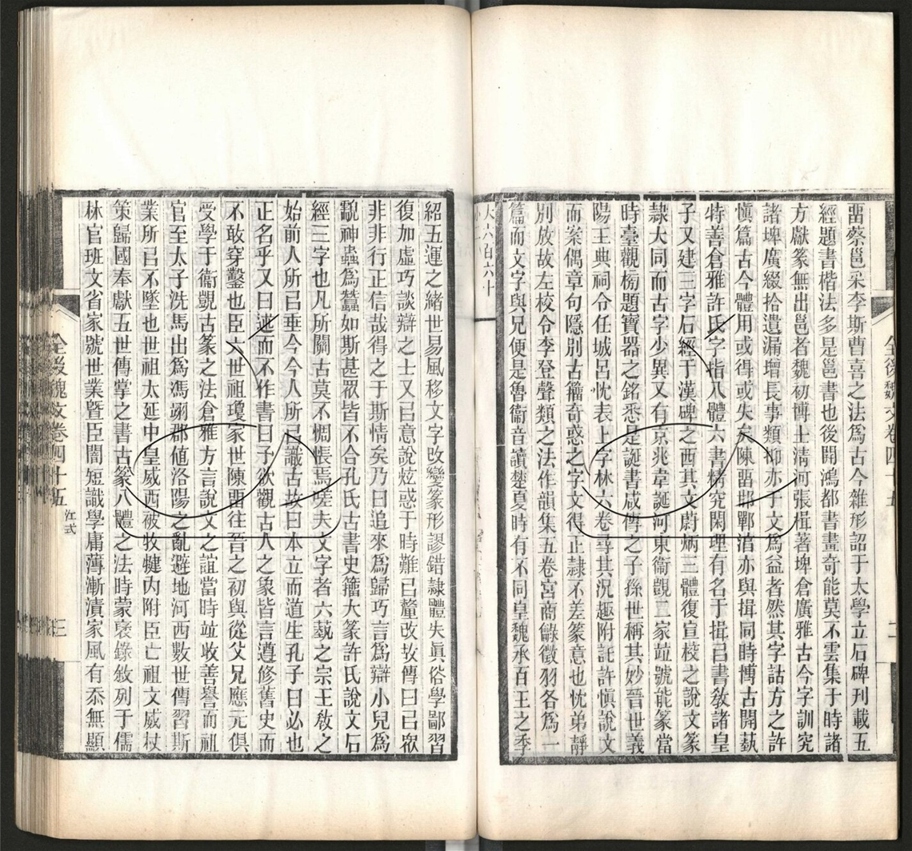 蔡邕采李斯曹喜之法爲古今雜形詔于太學立石碑刋載五
經題書楷法多是邕書也後開鴻都書畫奇能莫不雲集于時諸
方獻篆無出邕者魏初博士清河張揖著埤倉廣雅古今字詁究
諸埤廣綴拾遺漏增長事類抑亦于文爲益者然其字詁方之許
愼篇古今體用或得或失矣陳畱邯鄲淳亦與揖同時博古開蓺
特善倉雅許氏字指八體六書精究閑理有名于揖㠯書敎諸皇
子又建三字石經于漢碑之西其文蔚炳三體復宣校之說文篆
隸大同而古字少異又有京兆韋誕河東衞覬二家竝號能篆當
時臺觀牓題寶器之銘悉是誕書咸傳之子孫世稱其妙晉世義
陽王典祠令任城呂忱表上字林六卷尋其況趣附託許愼說文
而案偶章句隱別古籀奇惑之字文得正隸不差篆意也忱弟靜
別放故左校令李登聲類之法作韻集五卷宮商龣徵羽各爲一
篇而文字與兄便是魯衞音讀楚夏時有不同皇魏承百王之季
紹五運之緒世易風移文字改變篆形謬錯隷體失眞俗學鄙習
復加虛巧談辯之士又㠯意說炫惑于時難㠯釐改故傳曰㠯眾
非非行正信哉得之于斯情矣乃曰追來爲歸巧言爲辯小兒爲
䨲神蟲爲蠶如斯甚眾皆不合孔氏古書史籀大篆許氏說文石
經三字也凡所關古莫不惆悵焉嗟夫文字者六蓺之宗王敎之
始前人所㠯垂今今人所㠯識古故曰本立而道生孔子曰必也
正名乎又曰述而不作書曰予欲觀古人之象皆言遵修舊史而
不敢穿鑿也臣六世祖瓊家世陳畱往晉之初與從父兄應元俱
受學于衞覬古篆之法倉雅方言說文之誼當時竝收善譽而祖
官至太子洗馬出爲馮翊郡値洛陽之亂避地河西數世傳習斯
業所㠯不墜也世祖太延中皇威西被牧犍內附臣亡祖文威杖
策歸國奉獻五世傳掌之書古篆八體之法時蒙襃錄敘列于儒
林官班文省家號世業曁臣闇短識學庸薄漸漬家風有忝無顯
全後魏文卷四十五
江式